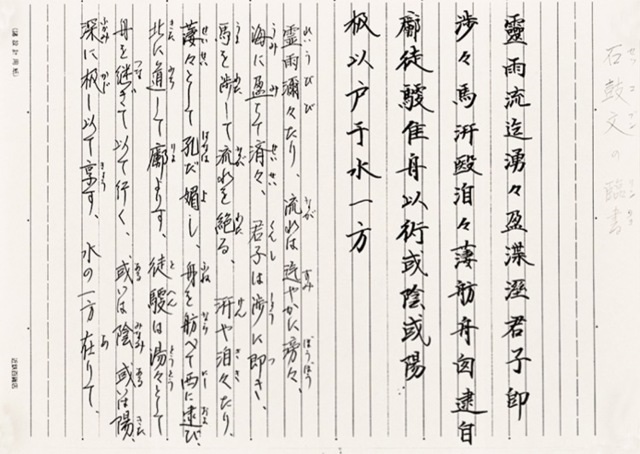 石鼓文の臨書
靈雨流迄湧々盈渫溼君子即
渉々馬汧殹泊々萋舫舟囪逮自
廊徒騣隹舟以術或陰或陽
极以户于水一方
霊雨瀰々たり、流れは迄やかに滂々、
海に盈ちて済々、君子は渉に即き、
馬を渉して流れを絶る、汧や泊々たり、
萋々として
舟を舫べて西に逮び、
北に道して廊よりす、徒騣は湯々として
舟を継ぎて以て行く、或いは陰、或いは陽、
深に极し以て 水の一方在りて、